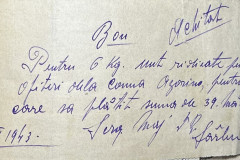 Achitat
Bon
Pentru 6 Kg. unt ridicate pe
ofițeri dela coma Agorino, pentru
care sa plătit suma de 39. ma
1943. Serg Maj